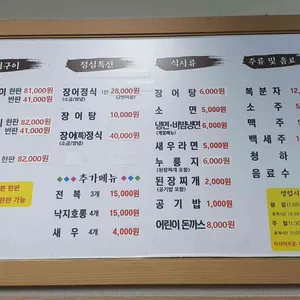 점심특선
식사류
주류 및 음료
한판 81,000원
반판 41,000원
한판 82,000원
반판 41,000원
한판 82,000원
장어정식 1인 28,000원
(소금/양념) (2인이상)
장어탕 10,000원
정식 40,000원
(소금/양념)
추가메뉴
전복 3개 15,000원
낙지호롱 4개 15,000원
새우 4개 4,000원
장어탕 6,000원
소면 5,000원
냉면·비빔냉면 6,000원
(계절메뉴)
새우라면 5,000원
누룽지 6,000원
(된장찌개 포함)
된장찌개 2,000원
(공기밥 포함)
공기밥 1,000원
어린이 돈까스 8,000원
복분자 12,
소주
맥주
백세주
청하
음료수